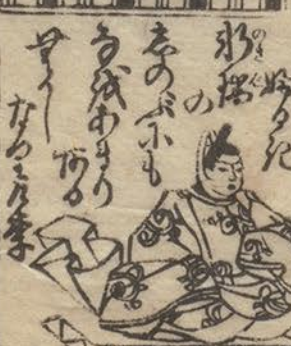 ふるき
軒端
の
しのぶにも
なほあまり
ある
むかし
なりけり